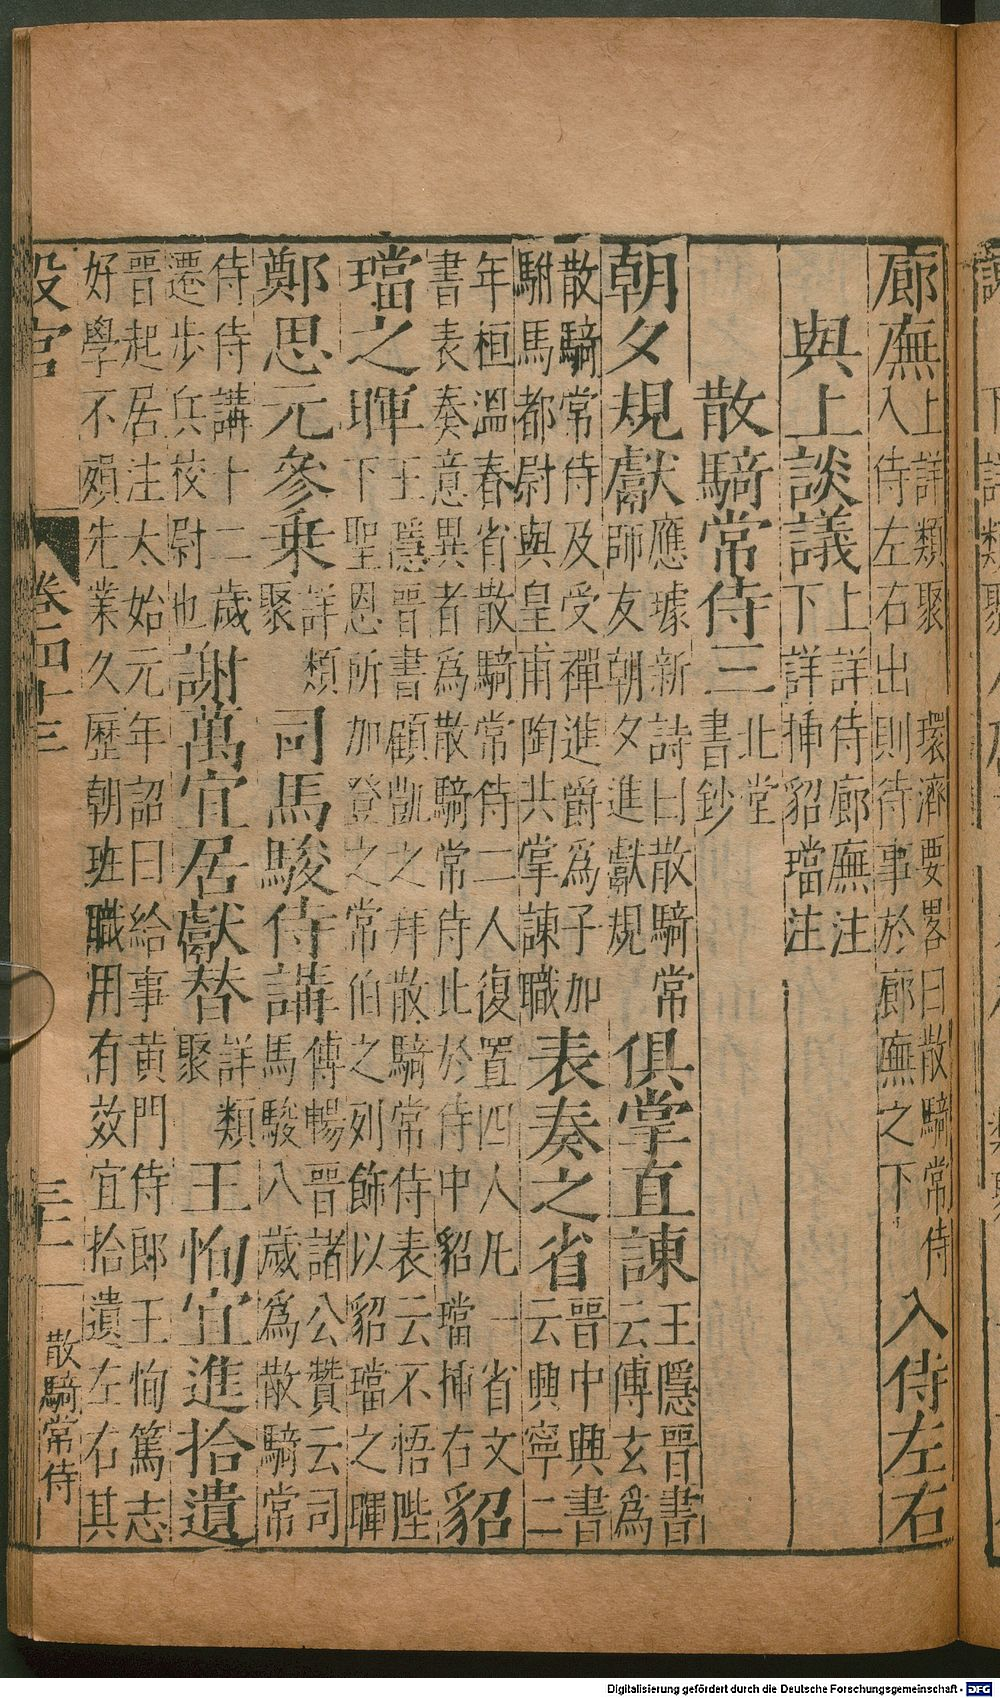 廊廡上詳類聚 環濟要畧曰散騎常侍入侍左右出則待事於廊廡之下 入侍左右
與上談議上詳侍廊廡注下詳揷貂璫注
散騎常侍三北堂書鈔
朝夕規獻應璩新詩曰散騎常師友朝夕進獻規 俱掌直諫王隱晉書云傅玄爲
散騎常侍及受禪進爵爲子加駙馬都尉與皇甫陶共掌諫職 表奏之省晉中興書云興寧二
年桓溫春省散騎常侍二人復置四人凡一省文書表奏意異者爲散騎常侍此於侍中貂璫揷右 貂
璫之暉王隱晉書顧凱之拜散騎常侍表云不悟陛下聖恩所加登之常伯之列飾以貂璫之暉
鄭思元參乗詳類聚 司馬駿侍講傅暢晉諸公贊云司馬駿入歲爲散騎常
侍侍講十二歲遷步兵校尉也 謝萬宜居獻替詳類聚 王恂宜進拾遺
晉起居注太始元年詔曰給事黄門侍郎王恂篤志好學不頫先業久歷朝班職用有效宜拾遺左右其
設官 卷四十三 三十一 散騎常侍
Digitalisierung gefördert durch die Deutsche Forschungsgemeinschaft - DFG